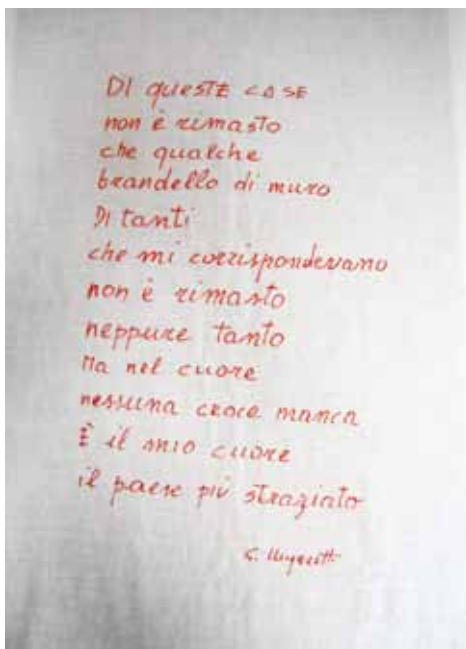 DI questE CASE
non è rimasto
che qualche
brandello di muro
Di tanti
che mi corrispondevano
non è rimasto
neppure tanto
Ma nel cuore
nessuna croce manca
È il mio cuore
il paese più straziato
G. Ungaretti